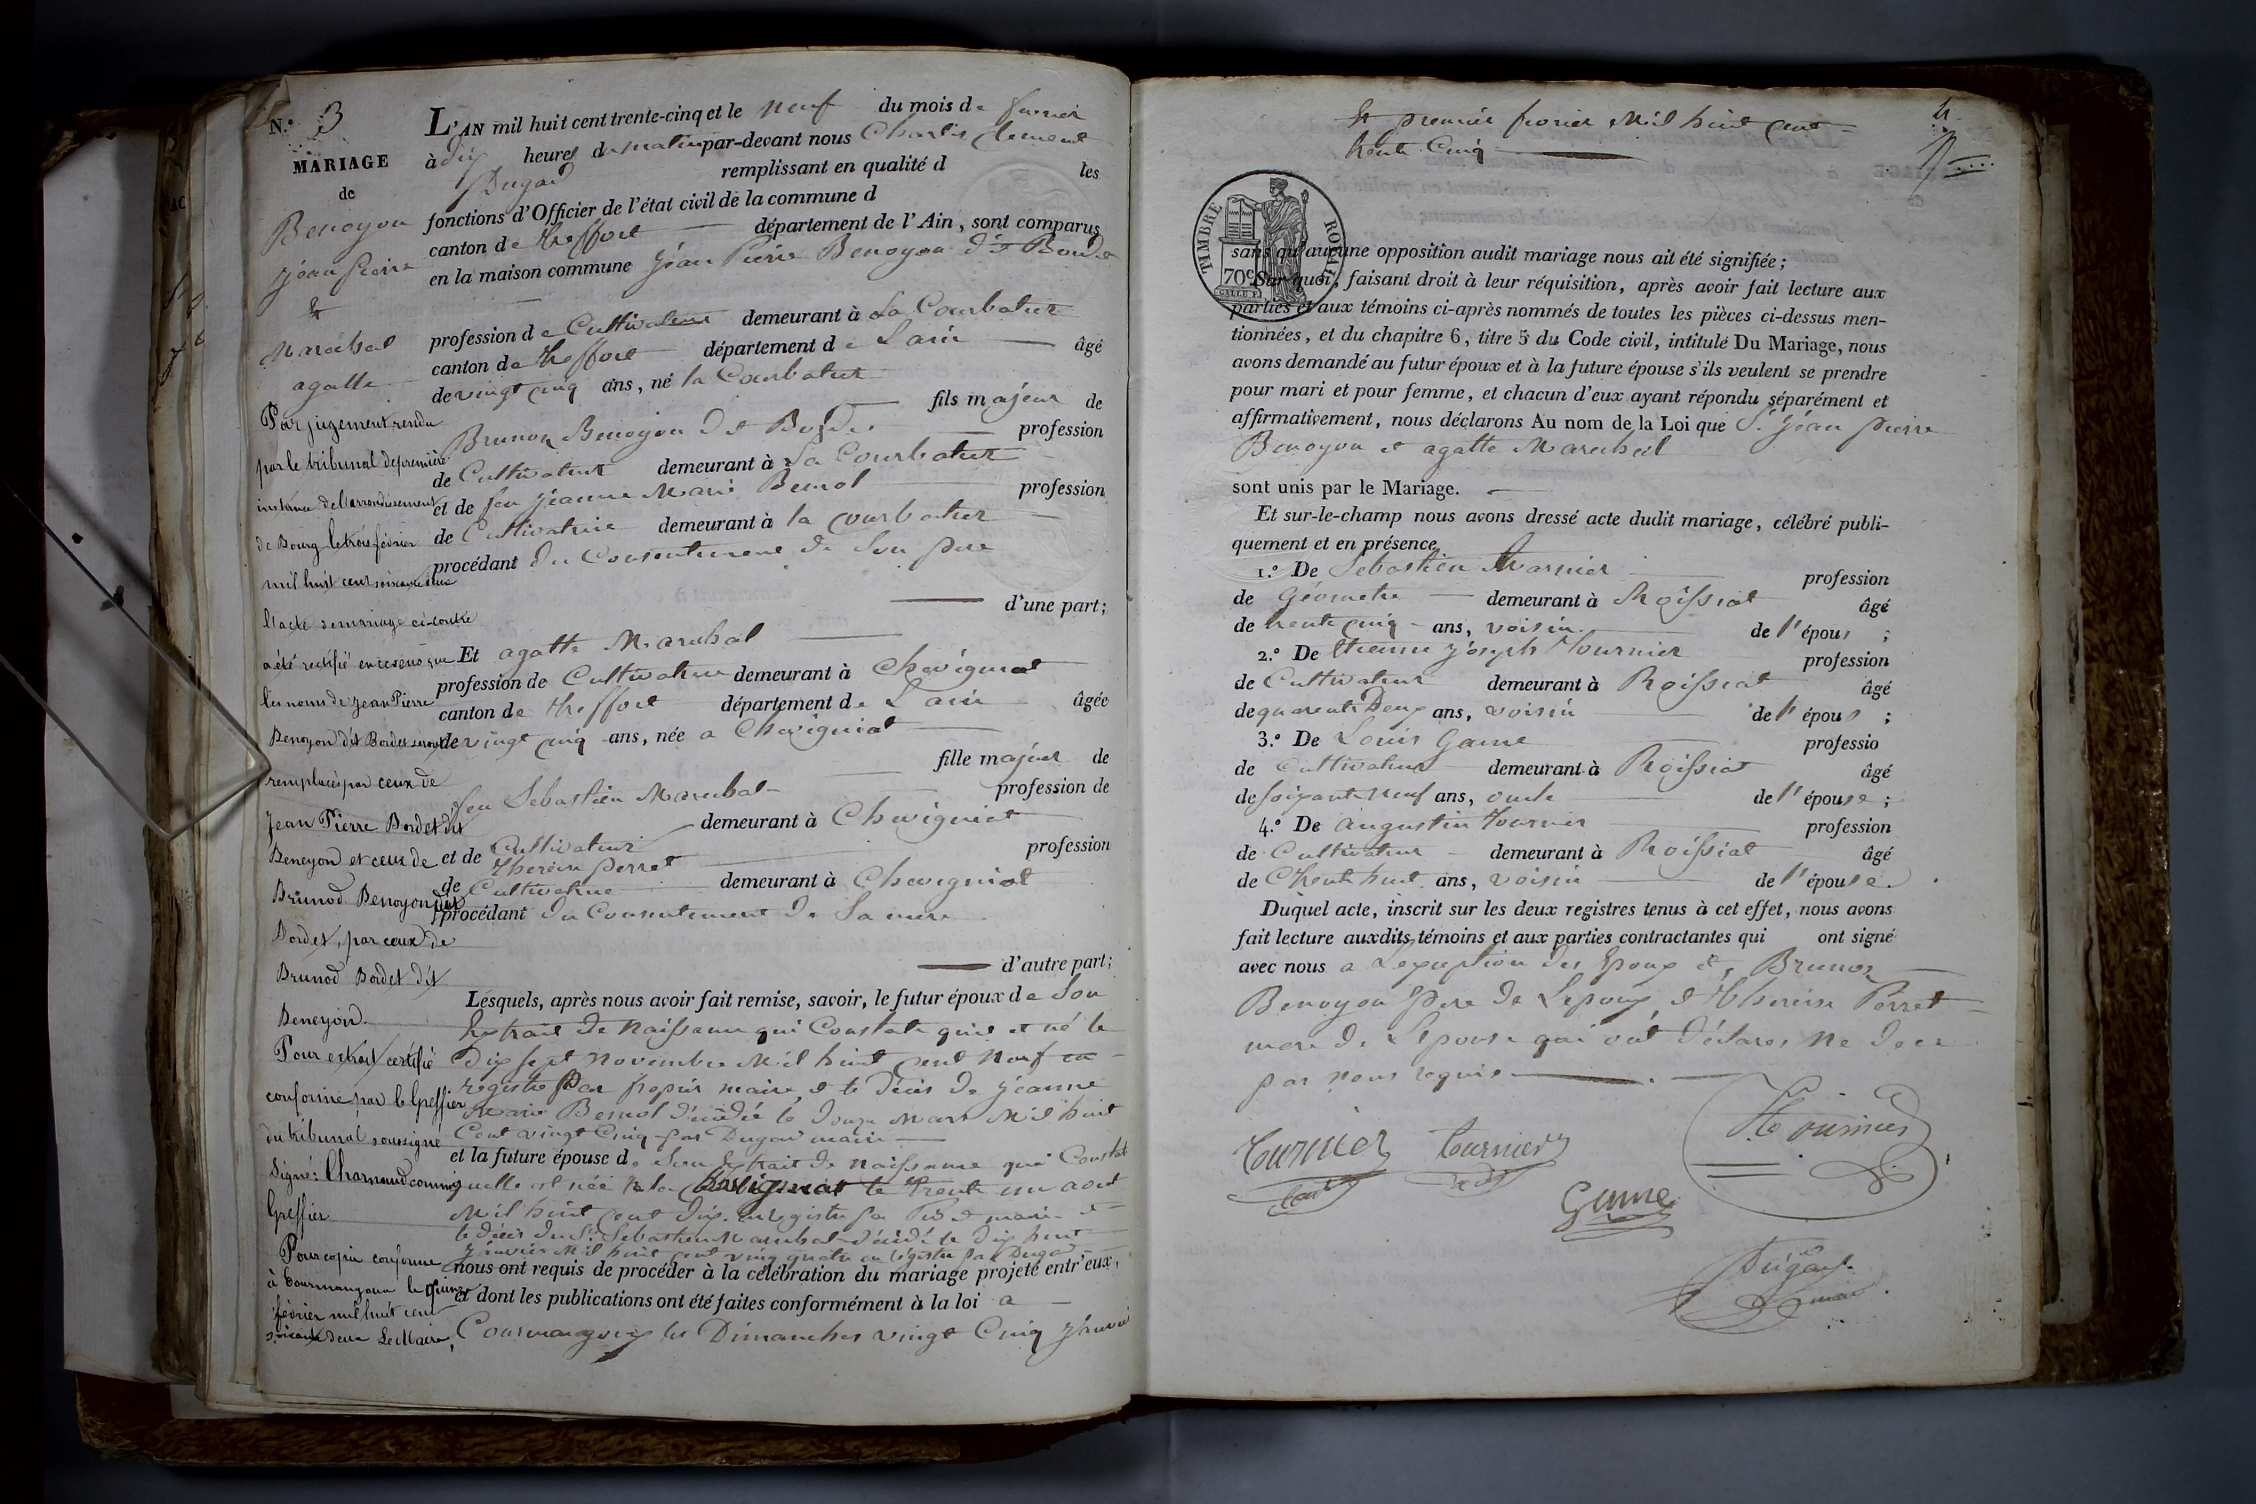 N.° 3
MARIAGE
de
Benoyon
jean pierre
&
Maréchal
agatte
Par jugement rendu
par le tribunal de première
instance de l'arrondissement
de Bourg le trois février
mil huit cent soixante deux
l'acte de mariage ci-contre
a été rectifié en ce sens que
les noms de Jean Pierre
Benoyon dit Bordet seront
remplacés par ceux de
Jean Pierre Bordet dit
Beneyon et ceux de
Brunod Benoyon dit
Bordet, par ceux de
Brunod Bordet dit
Beneyon.
Pour extrait certifié
conforme par le Greffier
du tribunal soussigné
Signé: Charnaud commis
Greffier
Pour copie conforme
à Courmangoux le quinze
février mil huit cent
soixante deux Le Maire,
L'AN mil huit cent trente-cinq et le neuf du mois de fevrier
à dix heures du matin par-devant nous Charles Clement
Dugad remplissant en qualité d les
fonctions d'Officier de l'état civil de la commune d
canton de treffort département de l'Ain, sont comparus
en la maison commune Jéan Pierre Benoyon dit Bordet
profession de Cultivateur demeurant à La Courbatier
canton de treffort département de Lain âgé
de vingt cinq ans, né la Courbatier
fils majeur de
Brunon Benoyon dit Bordet profession
de Cultivateur demeurant à La Courbatier
et de feu Jéanne Marie profession
de Cultivatrice demeurant à la Courbatier
procédant du Consentement de Son pere
d'une part;
Et agatte Marechal
profession de Cultivatrice demeurant à Chevigniat
canton de treffort département de Lain âgée
de vingt cinq ans, née a Chevigniat
fille majeur de
feu Sebastien Marechal profession de
Cultivateur demeurant à Chevigniat
et de thereise perret profession
de Cultivatrice demeurant à Chevigniat
procédant du Consentement de Sa mere
d'autre part;
Lésquels, après nous avoir fait remise, savoir, le futur époux de Son
Extrait de naissance qui Constate qu'il et né le
Dix sept novembre Mil huit cent neuf en
registre Par maire, et le décès de jéanne
Marie décédée le douze Mars Mil huit
Cent vingt Cinq par Dugad maire
et la future épouse de Son Extrait de naissance qui Constat
quelle est née le trente un aout
Mil huit cent dix en registre par maire et
le décès du S.r Sebastien Marechal décédé le dix huit
janvier Mil huit cent vingt quatre en régistre par Dugad
nous ont requis de procéder à la célébration du mariage projeté entr'eux,
et dont les publications ont été faites conformément à la loi a
Courmangoux les Dimanches vingt Cinq janvier
4
Et premier fevrier Mil huit cent
trente Cinq
TIMBRE ROYAL
70c
sans qu'aucune opposition audit mariage nous ait été signifiée;
Sur quoi, faisant droit à leur réquisition, après avoir fait lecture aux
parties et aux témoins ci-après nommés de toutes les pièces ci-dessus men-
tionnées, et du chapitre 6, titre 5 du Code civil, intitulé Du Mariage, nous
avons demandé au futur époux et à la future épouse s'ils veulent se prendre
pour mari et pour femme, et chacun d'eux ayant répondu séparément et
affirmativement, nous déclarons Au nom de la Loi que S.r Jéan pierre
Benoyon et agatte Marechal
sont unis par le Mariage.
Et sur-le-champ nous avons dressé acte dudit mariage, célébré publi-
quement et en présence
1.° De Sebastien profession
de Géometre demeurant à Roissiat âgé
de trente cinq ans, voisin de l'épous ;
2.° De Etienne Joseph Tournier profession
de Cultivateur demeurant à Roissiat âgé
de quarente Deux ans, voisin de l'épous ;
3.° De Louis Game professio
de Cultivateur demeurant à Roissiat âgé
de soixante neuf ans, oncle de l'épouse ;
4.° De augustin tournier profession
de Cultivateur demeurant à Roissiat âgé
de Trente huit ans, voisin de l'épouse.
Duquel acte, inscrit sur les deux registres tenus à cet effet, nous avons
fait lecture auxdits témoins et aux parties contractantes qui ont signé
avec nous a Lexception des Epoux et, Brunon
Benoyon pere de Lepoux, et thereise Perret
mere de Lepouse qui ont déclarés ne
par nous requis
Turnier tournier Tournier
Game
Dugad
maire